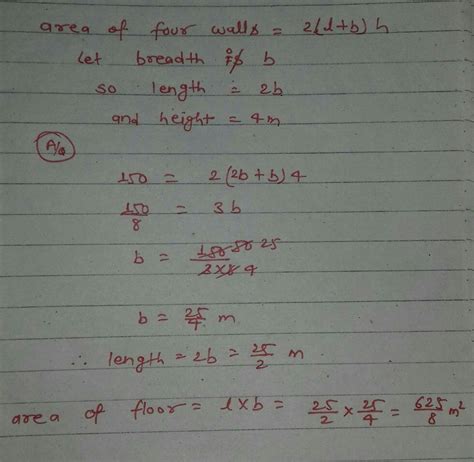 area of four walls = 2(l+b) h
Let breadth is b
so length = 2b
and height = 4m
A/q
150 = 2(2b+b)4
150/8 = 3b
b = 150 50 25 / 3×8 4
b = 25/4 m
∴ length = 2b = 25/2 m
area of floor = l×b = 25/2 × 25/4 = 625/8 m²